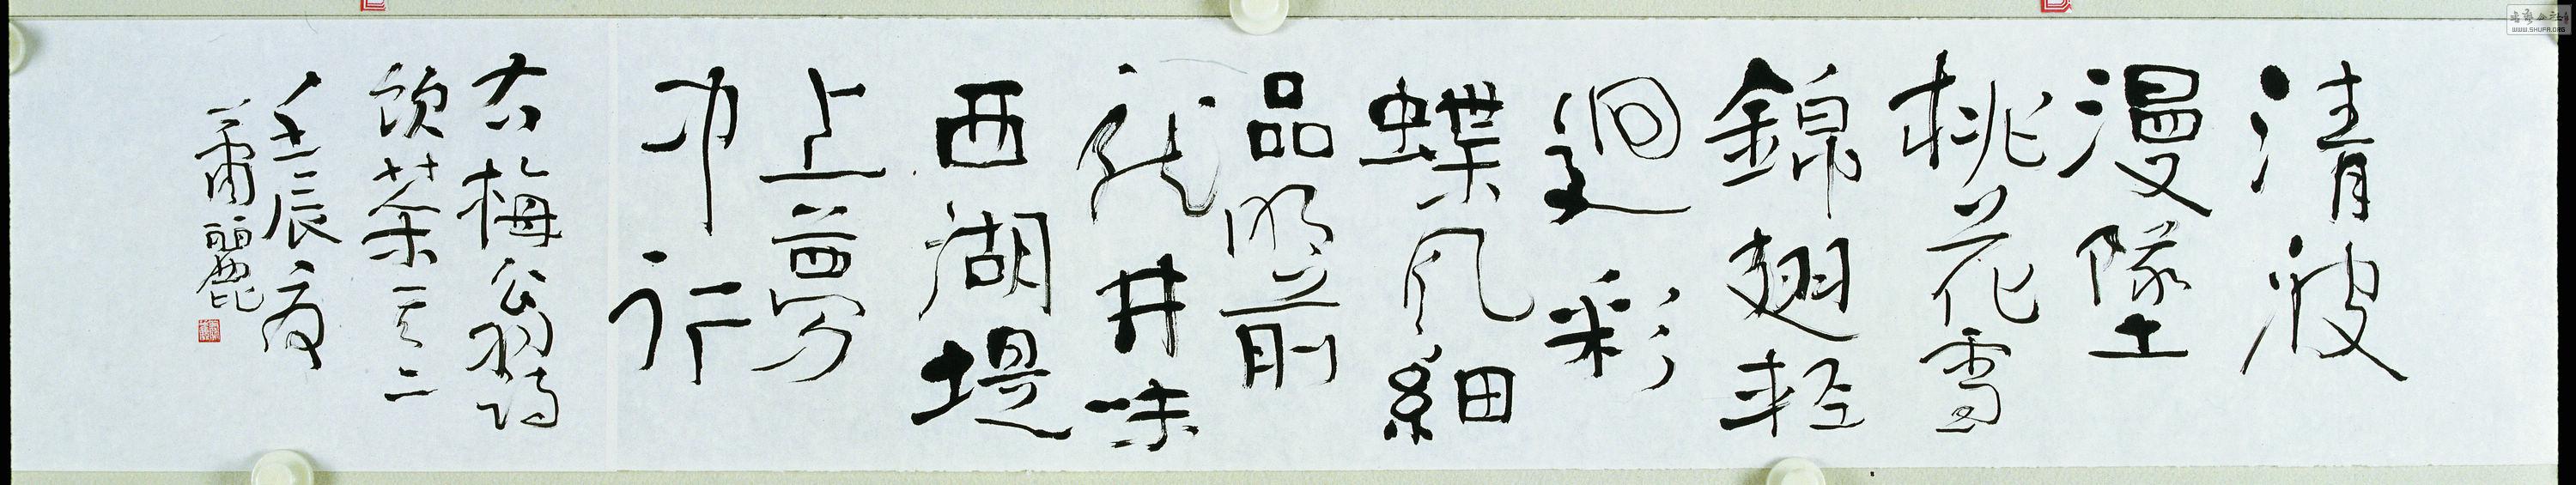 清波
漫墜
桃花雪
錦翅輕
迴彩
蝶風細
品明前
龍井味
西湖堤
上夢
中行
右梅公翁詩
頌茶之二
壬辰夏
蕭麗
WWW.SHUFA.ORG